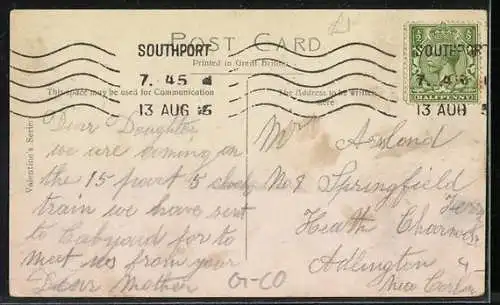 £1
POST CARD
Printed in Great Britain
SOUTHPORT
7. 45
13 AUG 15
SOUTHPORT
7. 45
13 AUG 15
HALFPENNY
This space may be used for Communication
The Address to be written here
Valentine's Series
Dear Daughter
we are coming on
the 15 past 5 clock
train we have sent
to Cabyard for to
meet us from your
Dear Mother
Mrs
No 8 Springfield
Heath Charnock
Adlington
Near